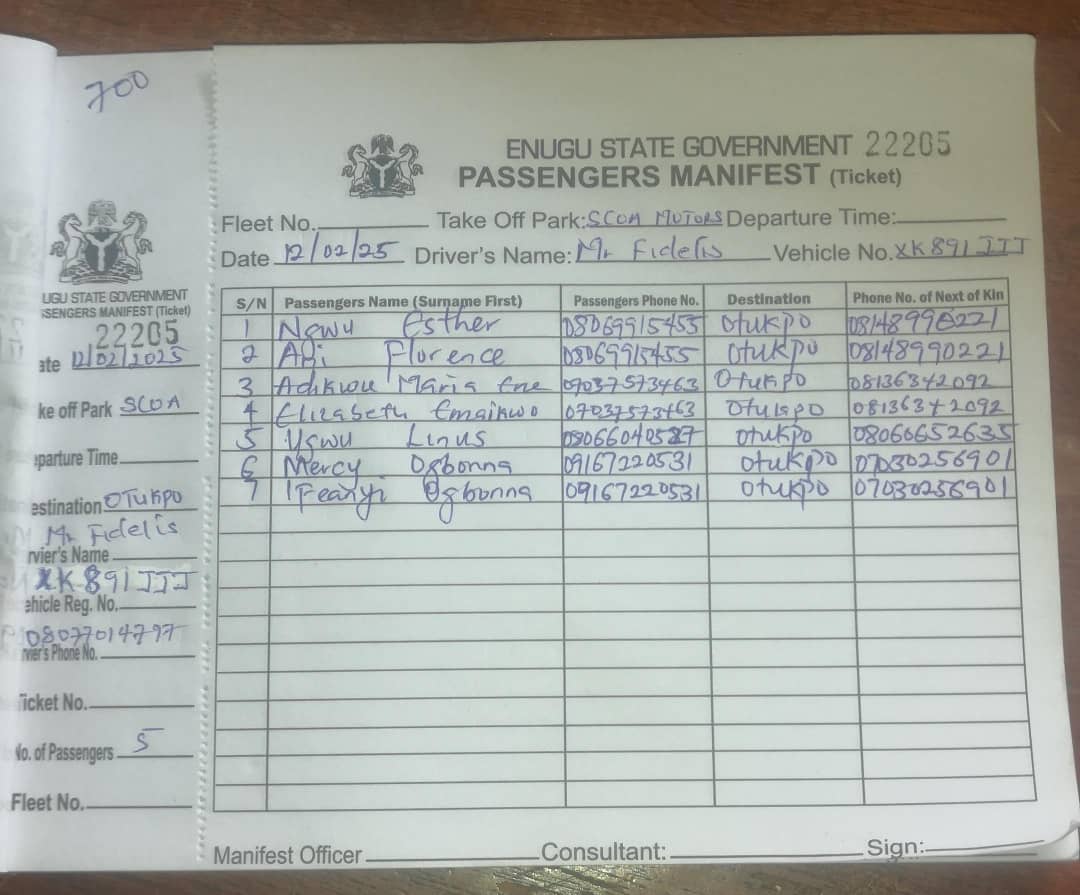 700
UGU STATE GOVERNMENT
SSENGERS MANIFEST (Ticket)
22205
ate 12/02/2025
ke off Park SCOA
eparture Time
estination OTUKPO
Mr Fidelis
rvier's Name
XK 891 JJJ
ehicle Reg. No.
08077014797
rvier's Phone No.
Ticket No.
No. of Passengers 5
Fleet No.
ENUGU STATE GOVERNMENT 22205
PASSENGERS MANIFEST (Ticket)
Fleet No. Take Off Park: SCOA MOTORS Departure Time:
Date 12/02/25 Driver's Name: Mr Fidelis Vehicle No. XK 891 JJJ
S/N Passengers Name (Surname First) Passengers Phone No. Destination Phone No. of Next of Kin
1 Ngwu Esther 08069915455 Otukpo 08148990221
2 Abi Florence 08069915455 Otukpo 08148990221
3 Adikwu Maria Ene 07037573463 Otukpo 08136342092
4 Elizabeth Emaikwo 07037573463 Otukpo 08136342092
5 Ugwu Linus 08066040527 Otukpo 08060652635
6 Mercy Ogbonna 09167220531 Otukpo 07030256901
7 Ifeanyi Ogbonna 09167220531 Otukpo 07030256901
Manifest Officer Consultant: Sign: